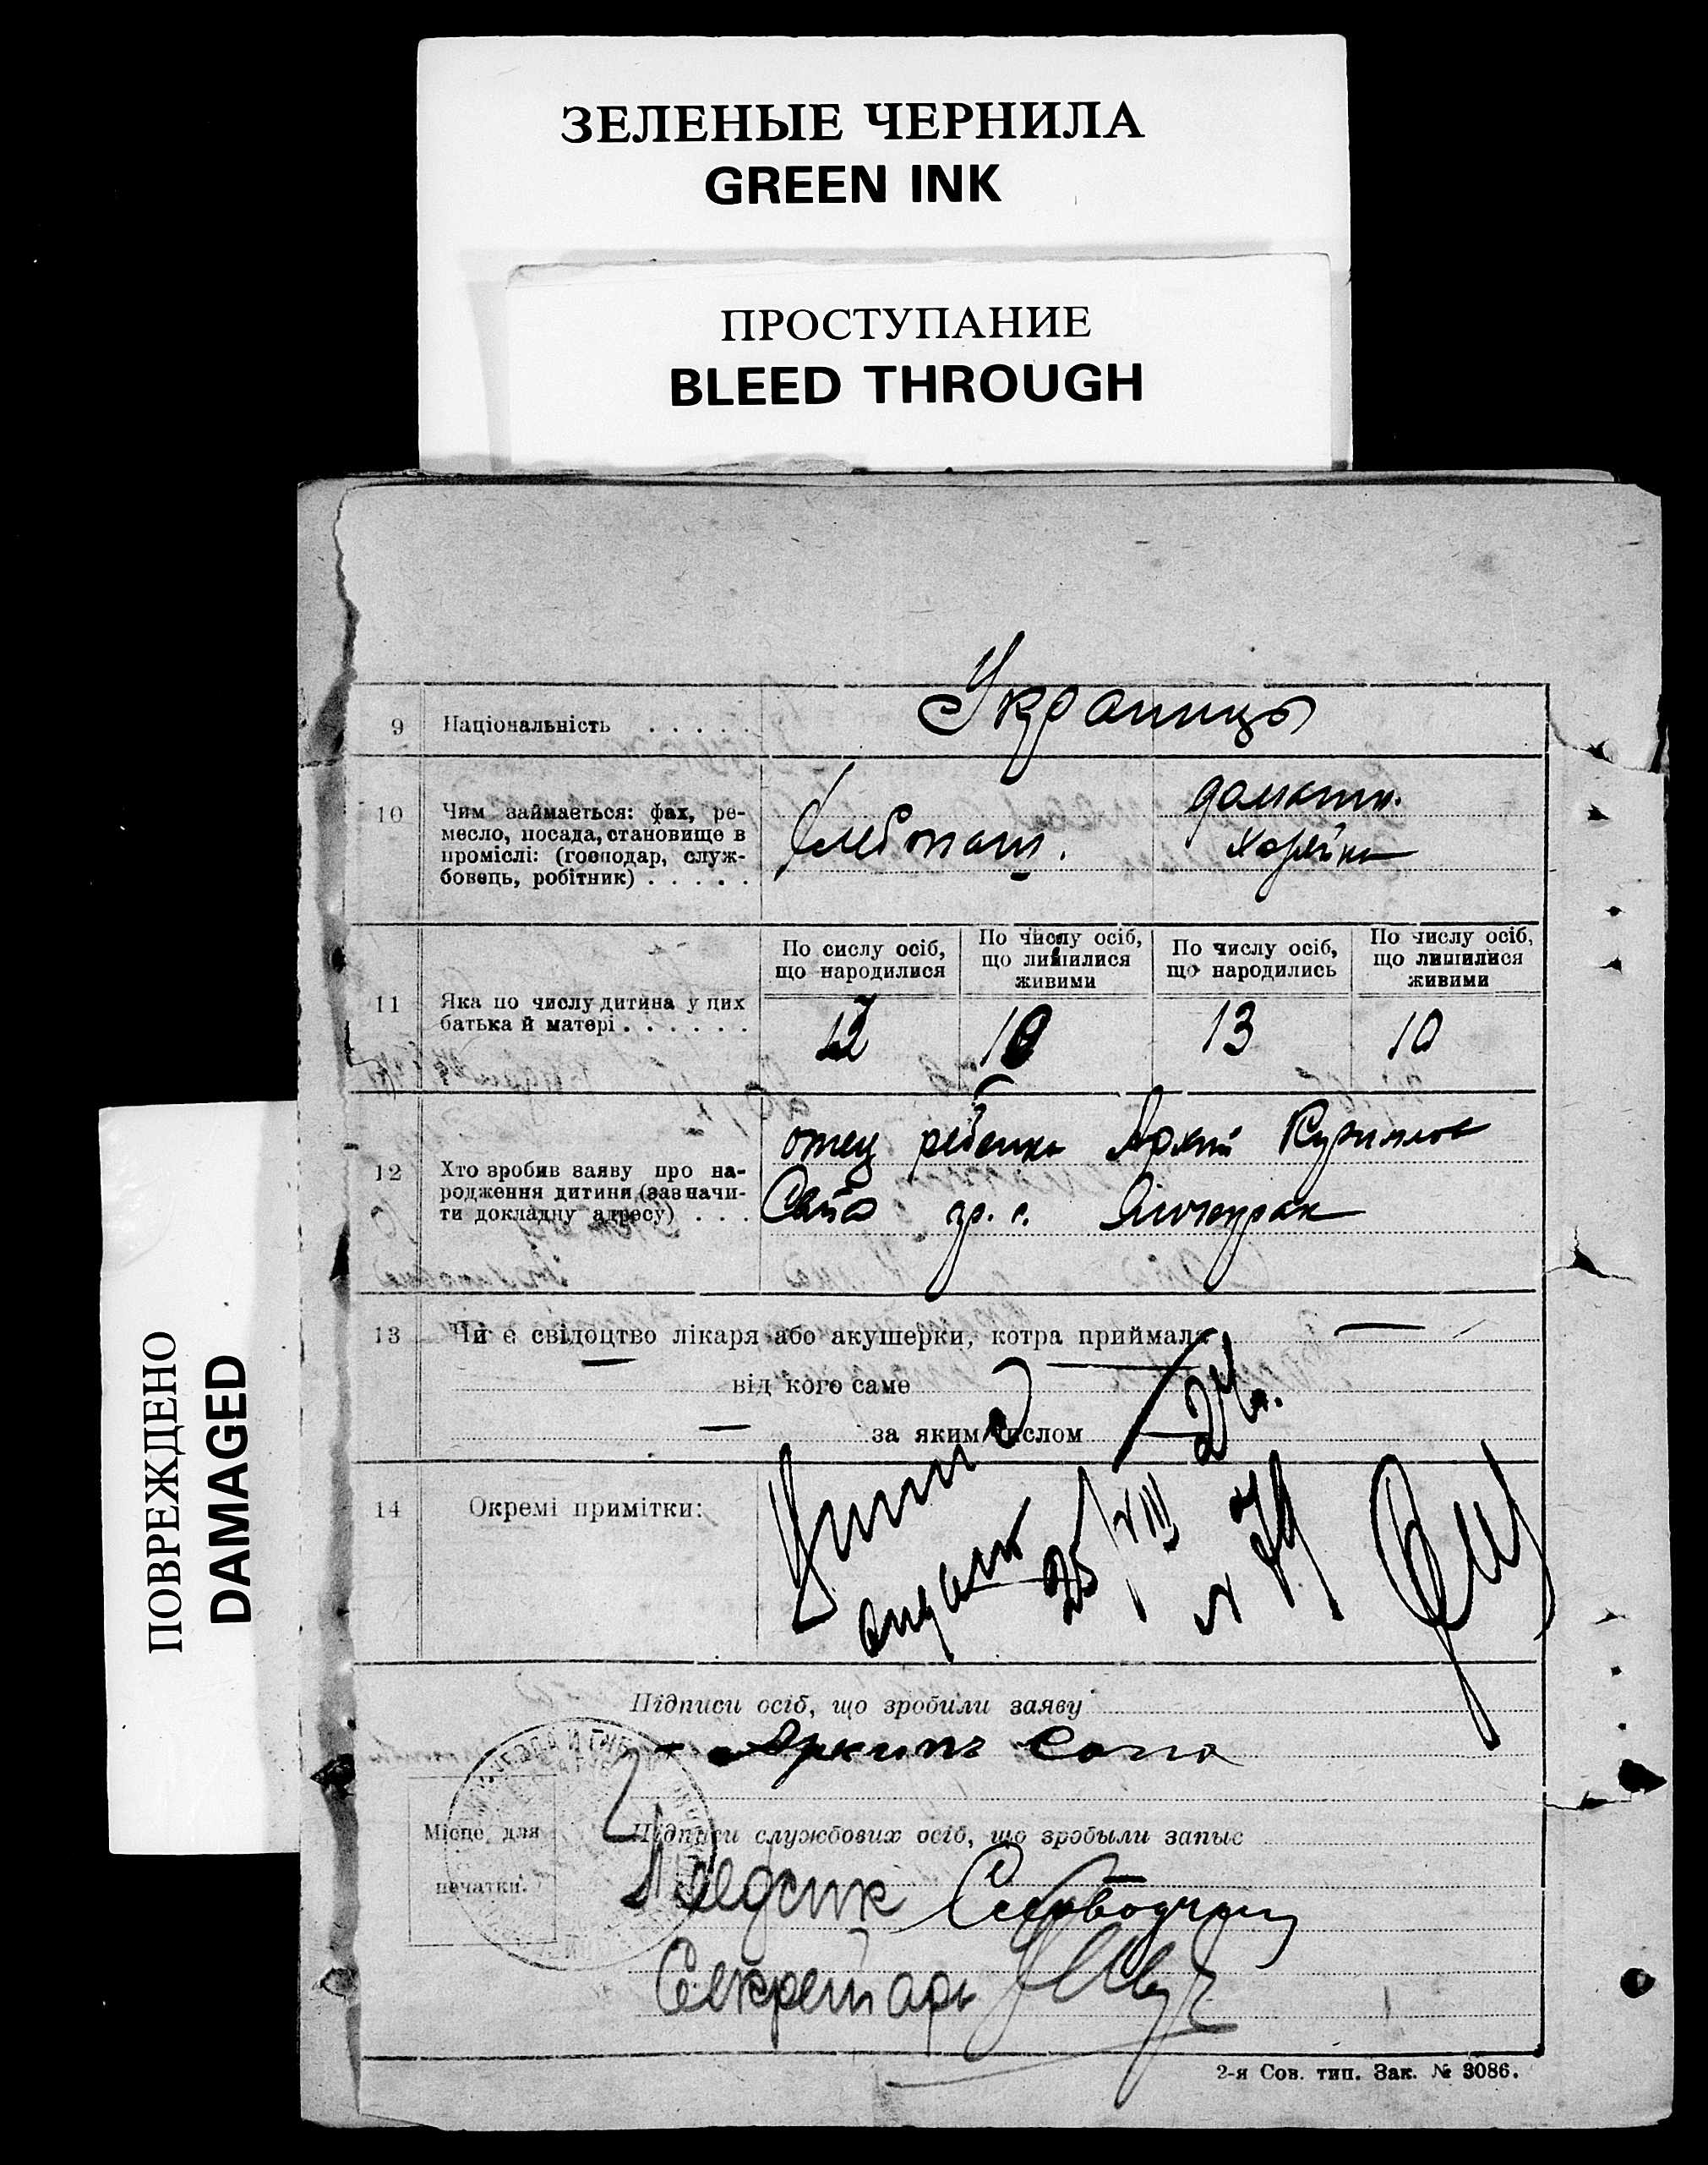 ЗЕЛЕНЫЕ ЧЕРНИЛА
GREEN INK
ПРОСТУПАНИЕ
BLEED THROUGH
ПОВРЕЖДЕНО
DAMAGED
9 Національність . . . . . Украинцы
10 Чим займається: фах, ре-
месло, посада, становище в
проміслі: (господар, служ-
бовець, робітник) . . . . .
хлебопаш.
домашн.
хозяйка
11 Яка по числу дитина у цих
батька й матері . . . . . .
По сислу осіб,
що народилися
12
По числу осіб,
що лишилися
живими
10
По числу осіб,
що народились
13
По числу осіб,
що лишилися
живими
10
12 Хто зробив заяву про на-
родження дитини (зазначи-
ти докладну адресу) . . .
отец ребенка Архип
гр. с. Янчекрак
13 Чи є свідоцтво лікаря або акушерки, котра приймала —
— від кого саме —
— за яким числом
14 Окремі примітки:
25/VIII 24
Підписи осіб, що зробили заяву
Архипъ
Місце для
печатки.
Підписи службових осіб, що зробыли запыс
Секретарь
2-я Сов. тип. Зак. № 3086.